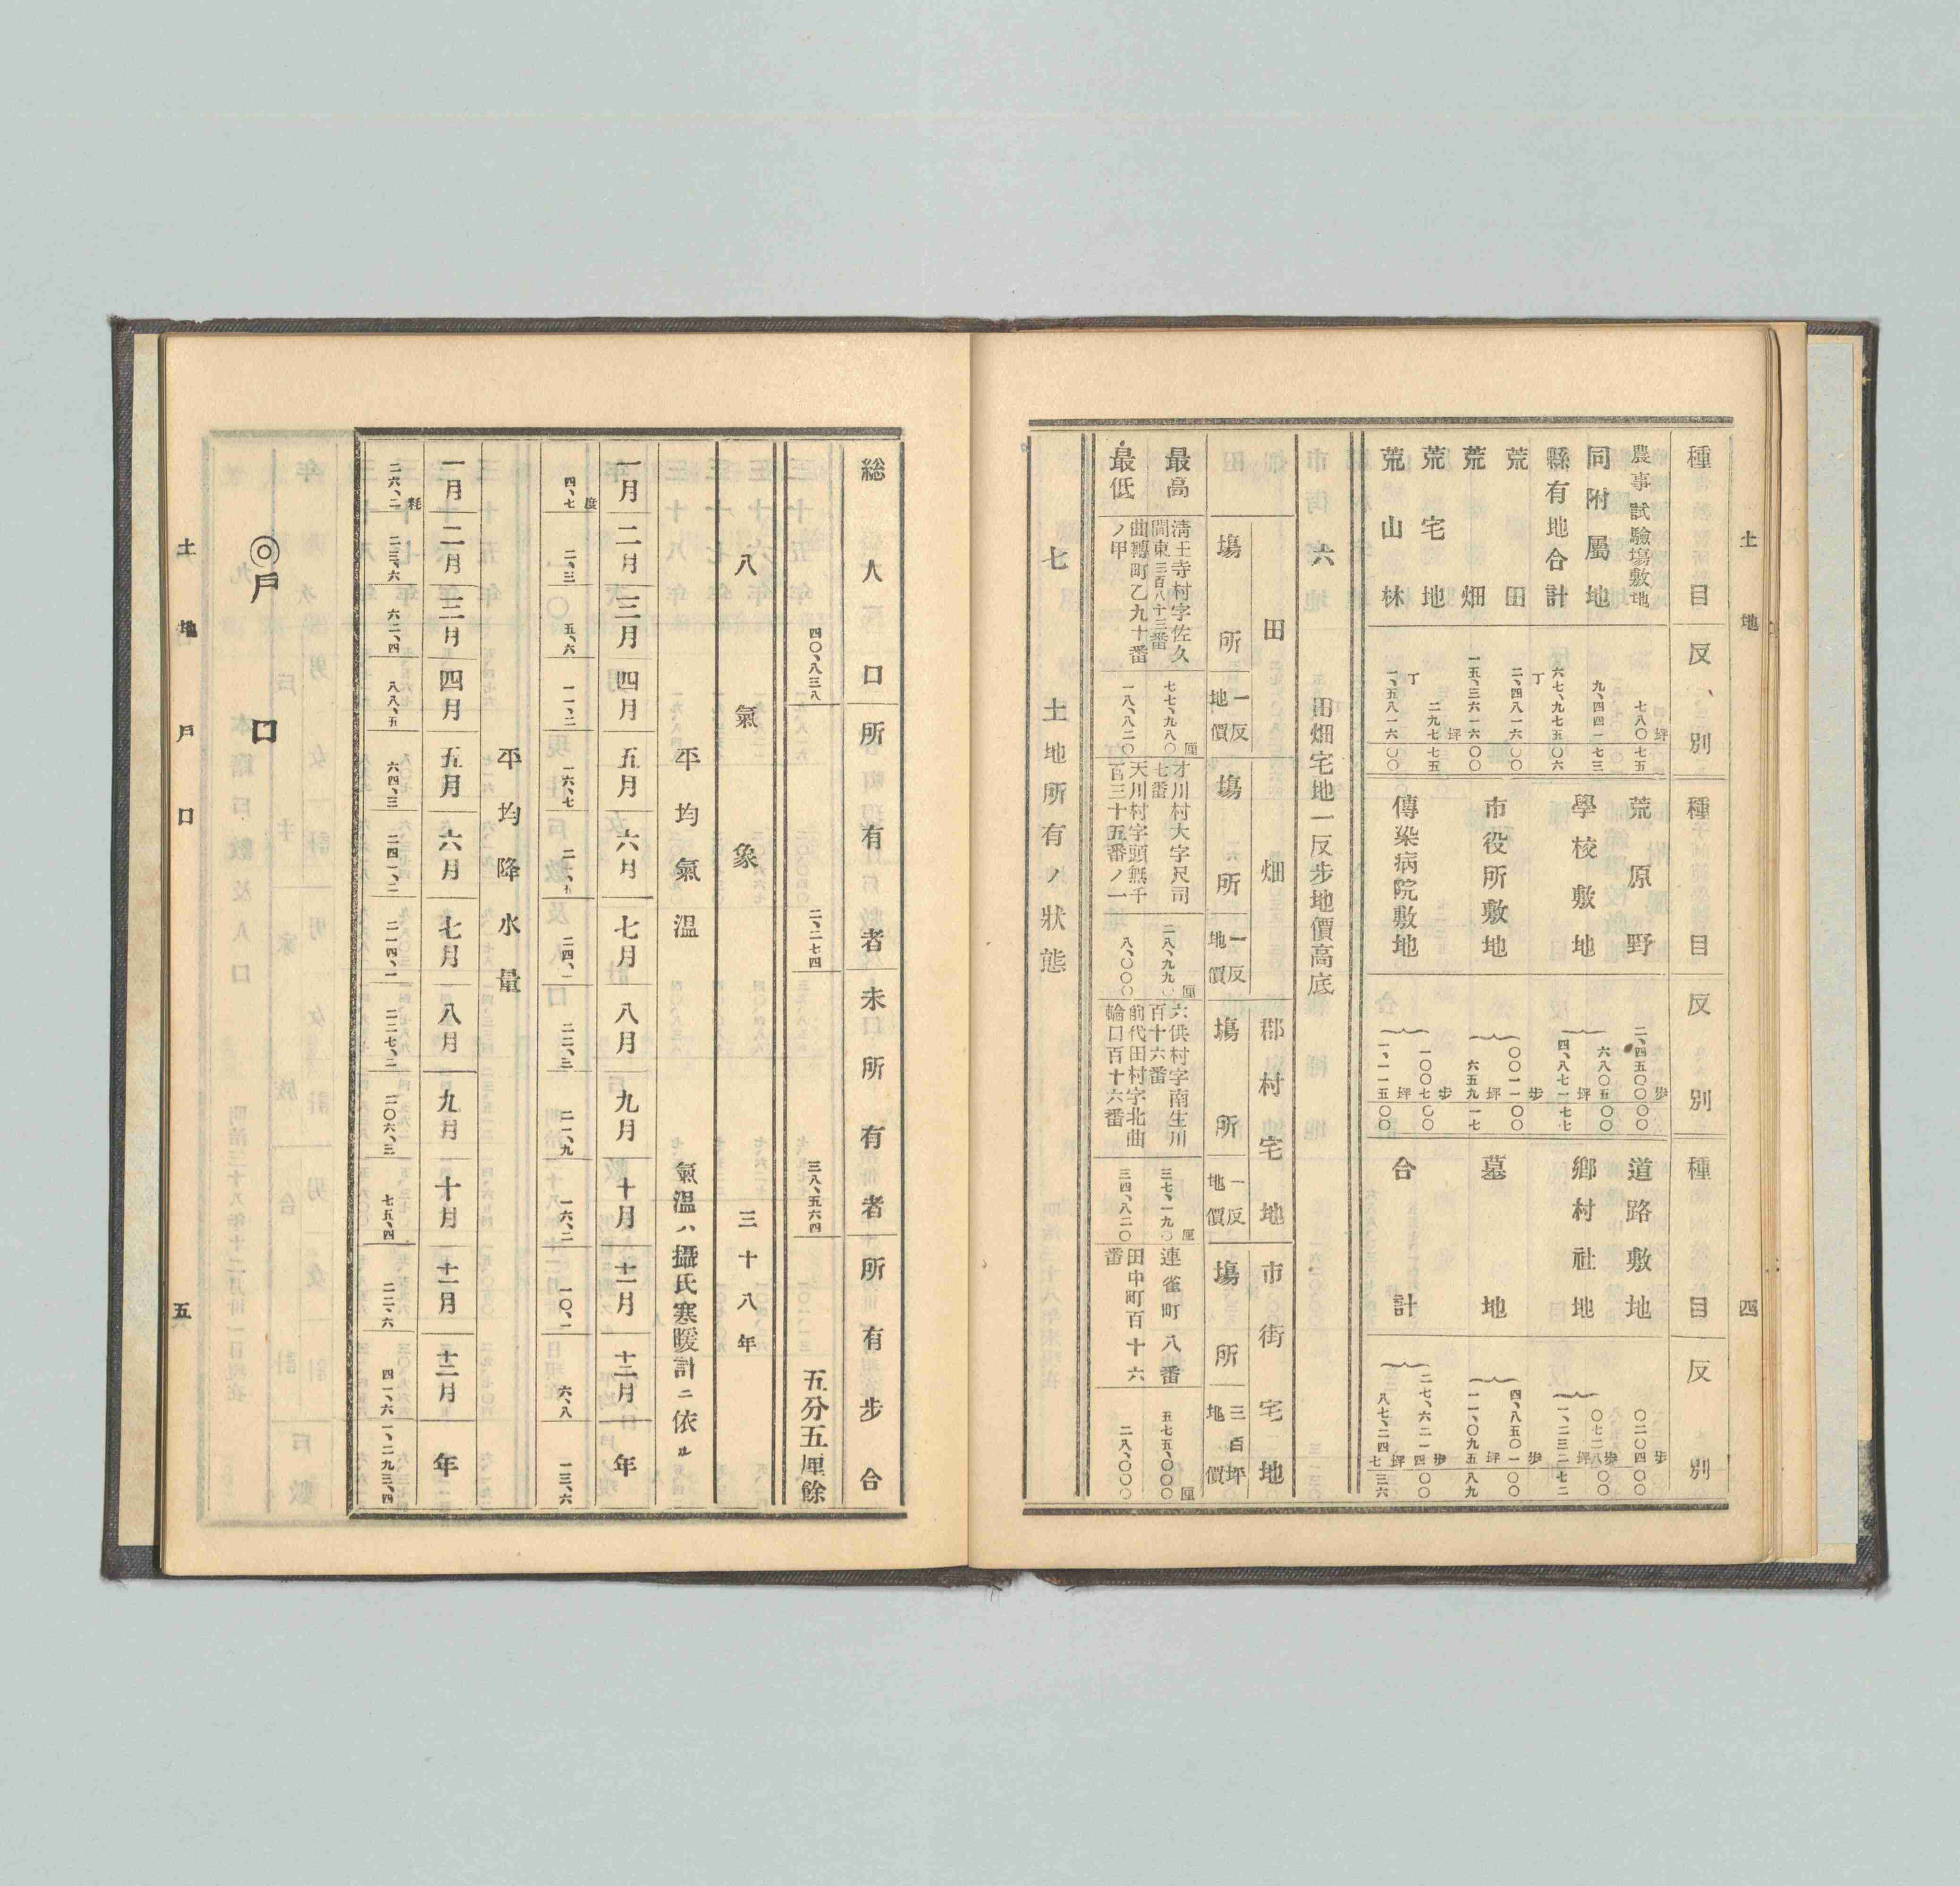 土地 四
種目 反、別 種目 反別 種目 反別
農事試驗場敷地 坪 七八〇七五
同附屬地 九、四四一七三
縣有地合計 六七、九七五〇六
荒田 丁 二、四八一六〇〇
荒畑 一五、三六一六〇〇
荒宅地 坪 二九七七五
荒山林 丁 一、五八一六〇〇
荒原野 步 二、四五〇〇〇〇
學校敷地 六八〇五〇〇 坪 四、八七一七七
市役所敷地 步 〇〇一一〇〇 坪 六五九一七
傳染病院敷地 步 一〇〇七〇〇 坪 一、一一五〇〇
道路敷地 步 〇二〇四〇〇
鄉村社地 步 〇七二八〇〇 坪 一、二三二七二
墓地 步 四、八五〇一〇〇 坪 一一、〇九五八九
合計 步 二七、六二一四〇〇 坪 八七、二四七三六
六 田畑宅地一反步地價高底
田 畑 郡村宅地 市街宅地
塲所 一反地價 塲所 一反地價 塲所 一反地價 塲所 三百坪地價
最高 清王寺村字佐久間東三百八十三番 厘 七七、九八〇 才川村大字尺司七番 厘 二八、九九〇 六供村字南生川百十六番 厘 三七、一九〇 連雀町八番 厘 五七五、〇〇〇
最低 曲輪町乙九十番ノ甲 一八、八二〇 天川村字頭無千百三十五番ノ一 八、〇〇〇 前代田村字北曲輪口百十六番 三四、八二〇 田中町百十六番 二八、〇〇〇
七 土地所有ノ狀態
総人口 所有者 未所有者 所有步合
四〇、八三八 二、二七四 三八、五六四 五分五厘餘
八 氣象 三十八年
平均氣溫 氣溫ハ攝氏寒暖計ニ依ル
一月 二月 三月 四月 五月 六月 七月 八月 九月 十月 十一月 十二月 年
度 四、七 二、三 五、六 一一、二 一六、七 二四、一 二二、三 二一、九 一六、二 一〇、一 六、八 一三、六
平均降水量
一月 二月 三月 四月 五月 六月 七月 八月 九月 十月 十一月 十二月 年
粍 二六、二 二三、六 六二、四 八八、五 六四、三 二四一、二 二一四、一 二二七、二 二〇六、三 七五、四 二二、六 四一、六 一、二九三、四
◎戶口
土地 戶口 五